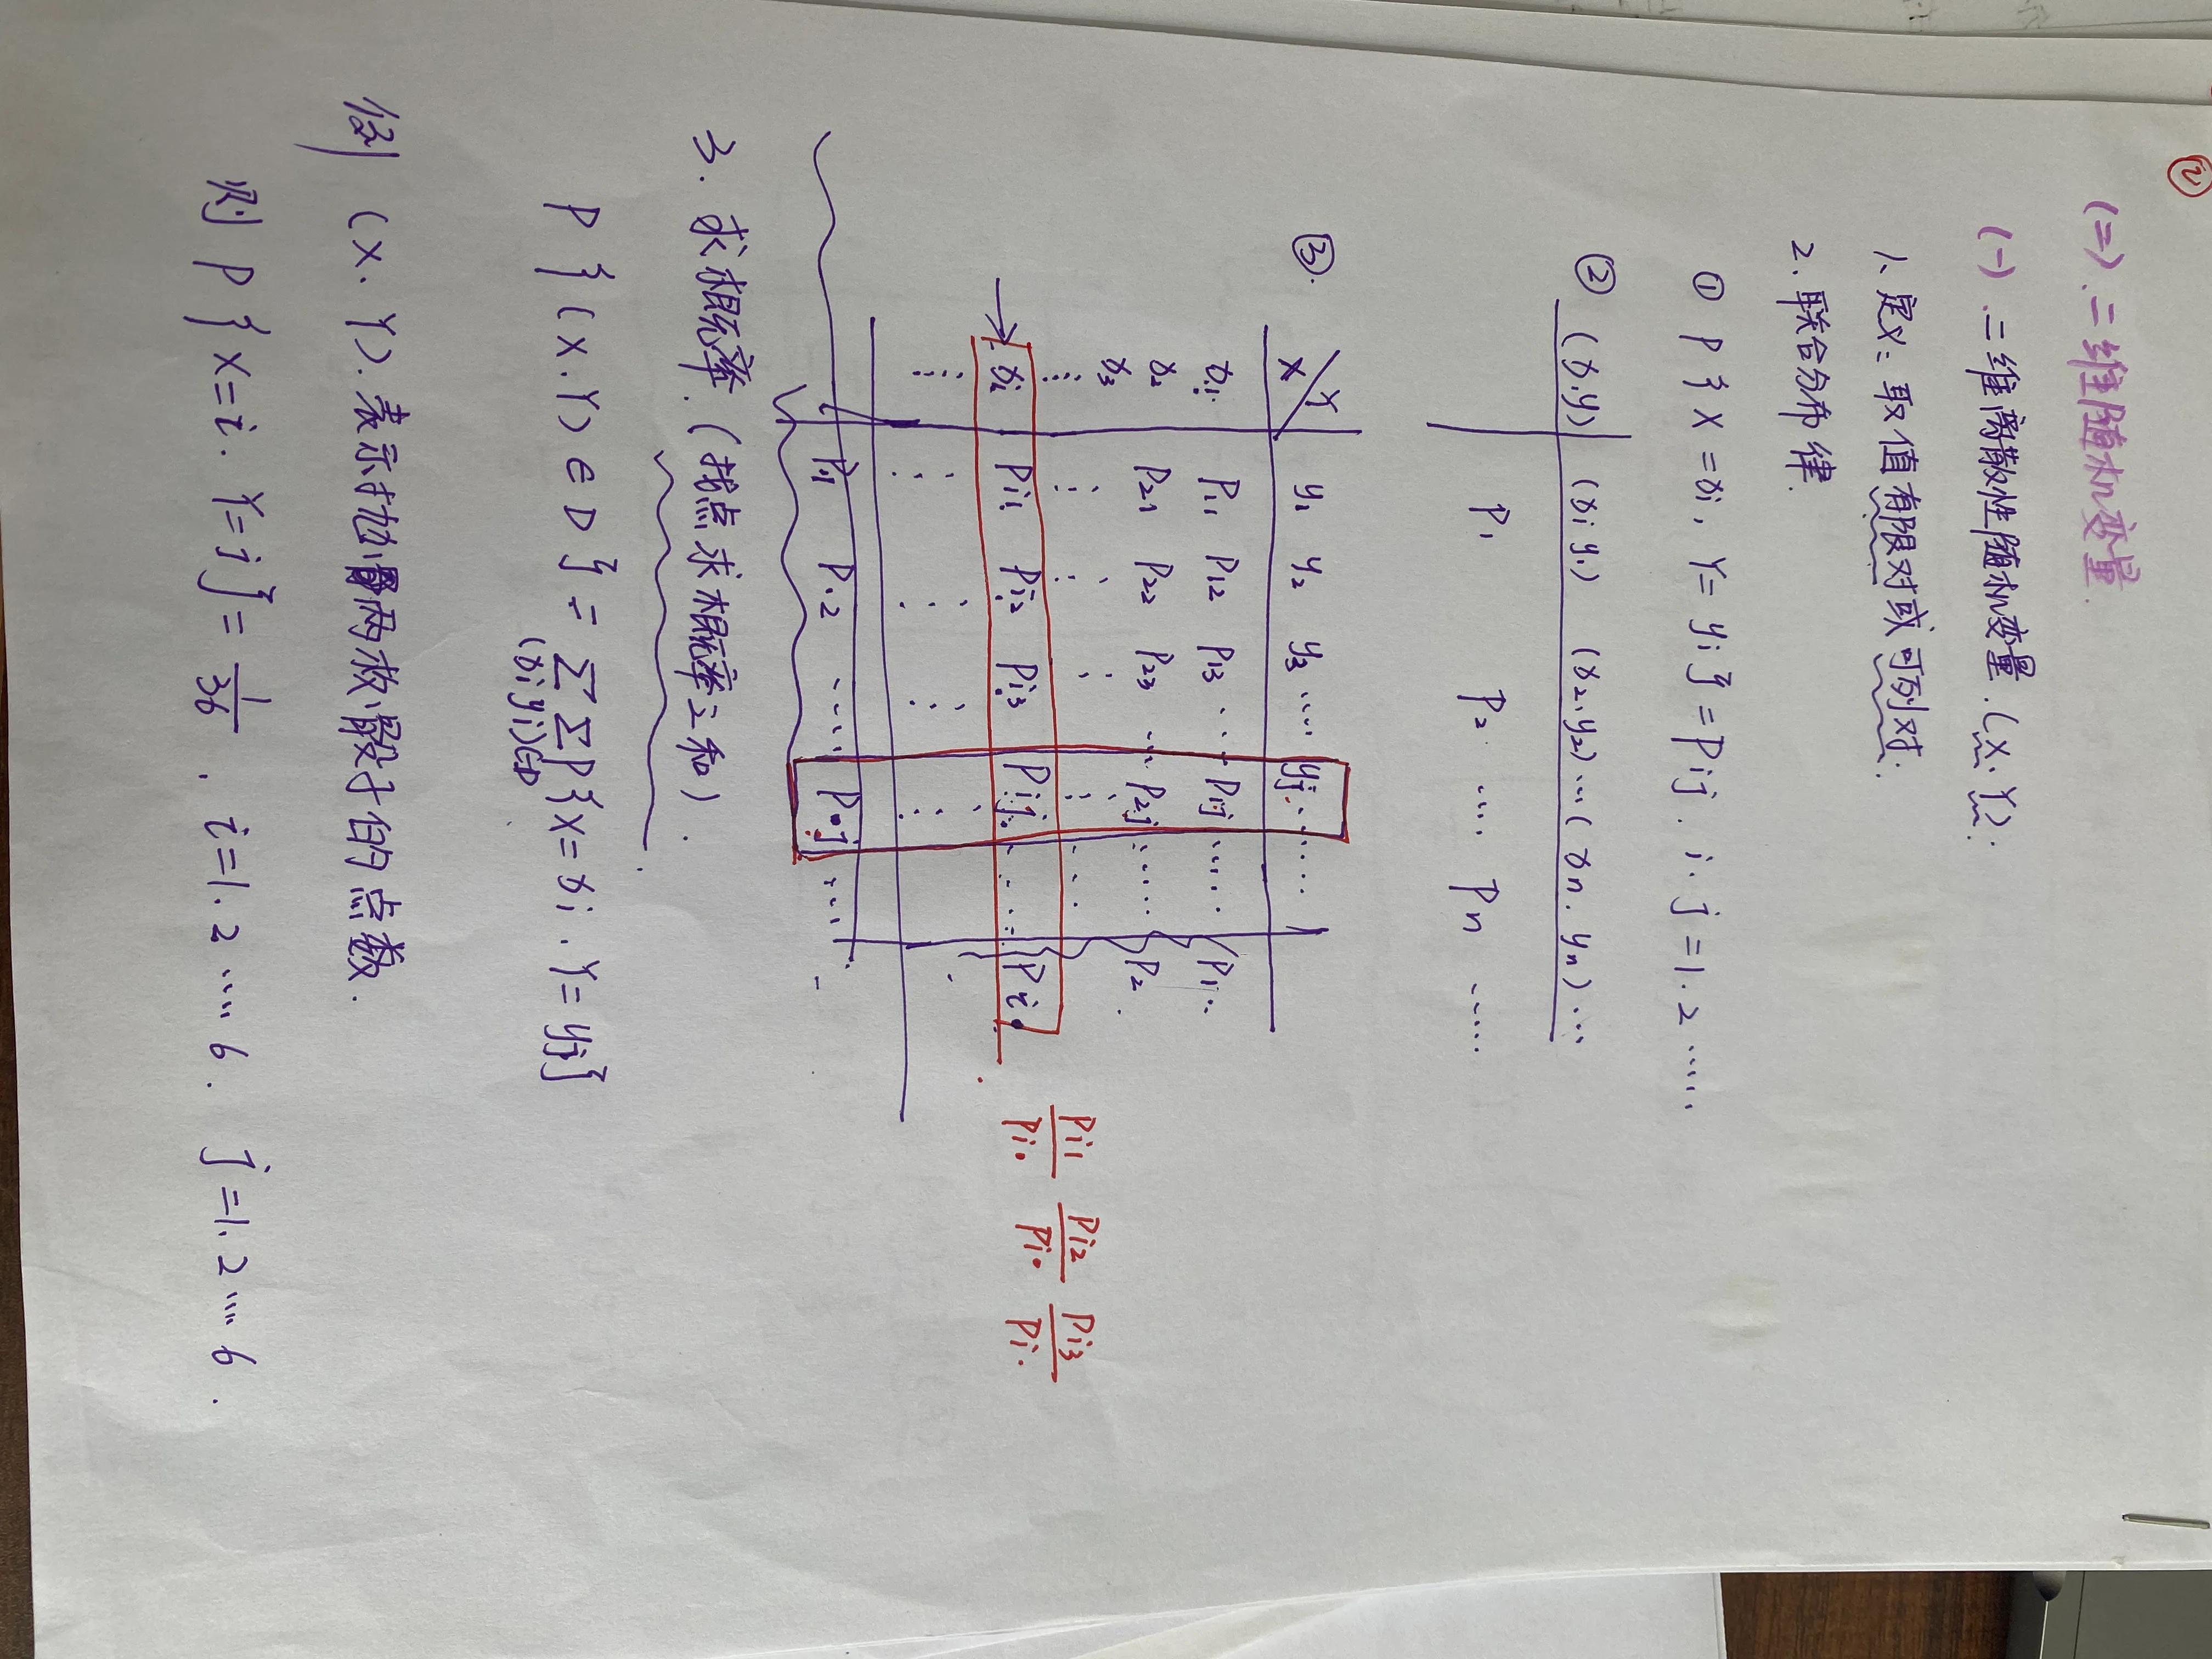 ②
(二).二维随机变量.
(一).二维离散性随机变量.(X.Y).
1.定义:取值有限对或可列对.
2.联合分布律.
① P{X=xi, Y=yi}=Pij. i.j=1.2……
② (x.y) (xi y1) (x2,y2)…(xn.yn)…
P1 P2 …… Pn ……
③ X Y y1 y2 y3 …… yj ……
x1 P11 P12 P13 … P1j …… P1.
x2 P21 P22 P23 … P2j …… P2
x3
xi Pi1 Pi2 Pi3 Pij … Pi• Pi1/Pi• Pi2/Pi• Pi3/Pi.
P.1 P.2 …… P•j ……
3.求概率.(找点求概率之和).
P{(X.Y)∈D}=ΣΣP{X=xi.Y=yj}
(xi yi)∈D
例 (X.Y).表示抛两枚骰子的点数.
则 P{X=i.Y=j}=1/36. i=1.2……6. j=1.2……6.